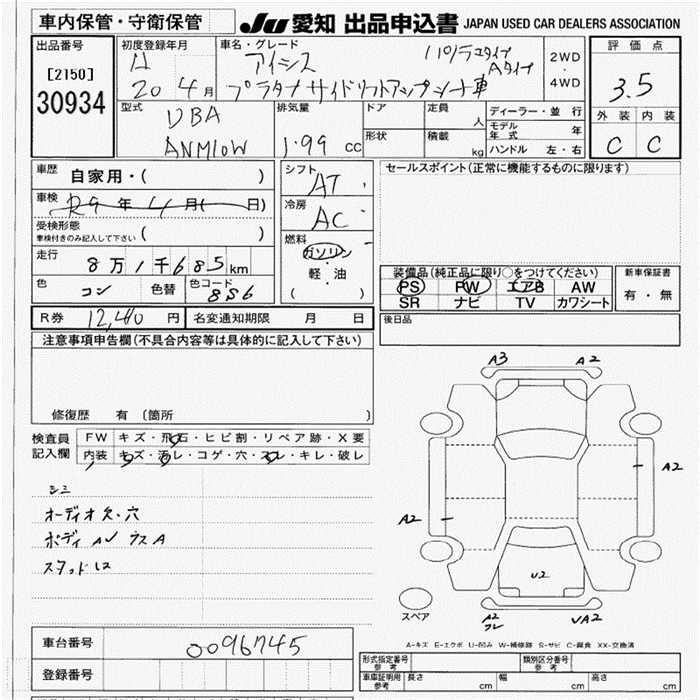 車内保管・守衛保管
JU 愛知 出品申込書 JAPAN USED CAR DEALERS ASSOCIATION
出品番号
[2150]
30934
初度登録年月
H
20 4 月
車名・グレード
アイシス
パノラマタイプ
Aタイプ
プラタナサイドリフトアップシート車
2WD
・
4WD
評価点
3.5
外装 内装
C C
型式
DBA
ANM10W
排気量
1.99 cc
ドア
定員
人
形状
積載
kg
ディーラー・並行
モデル年式 年
ハンドル 左・右
車歴
自家用・( )
車検
R9 年 4 月( 日)
受検形態
車検付きのみ記入して下さい ( )
走行
8万1千685km
色
コン
色替
色コード
8S6
シフト
AT
冷房
AC
燃料
ガソリン
軽・油
( )
セールスポイント(正常に機能するものに限ります)
装備品(純正品に限り○をつけてください)
PS PW エアB AW
SR ナビ TV カワシート
新車保証書
有・無
R券 12,410 円
名変通知期限 月 日
後日品
注意事項申告欄(不具合内容等は具体的に記入して下さい)
修復歴 有 〔箇所 〕
検査員
記入欄
FW キズ・飛石・ヒビ割・リペア跡・X要
内装 キズ・汚レ・コゲ・穴・スレ・キレ・破レ
シミ
オーディオ欠・穴
ボディ AU ウスA
スタッドレス
A3 A2
A2
A2
U2
スペア
A2
クレ
UA2
A-キズ E-エクボ U-凹み W-補修跡 S-サビ C-腐食 XX-交換済
車台番号
0096745
登録番号
形式指定番号
参考
類別区分番号
参考
車庫証明用
参考
長さ cm
幅 cm
高さ cm